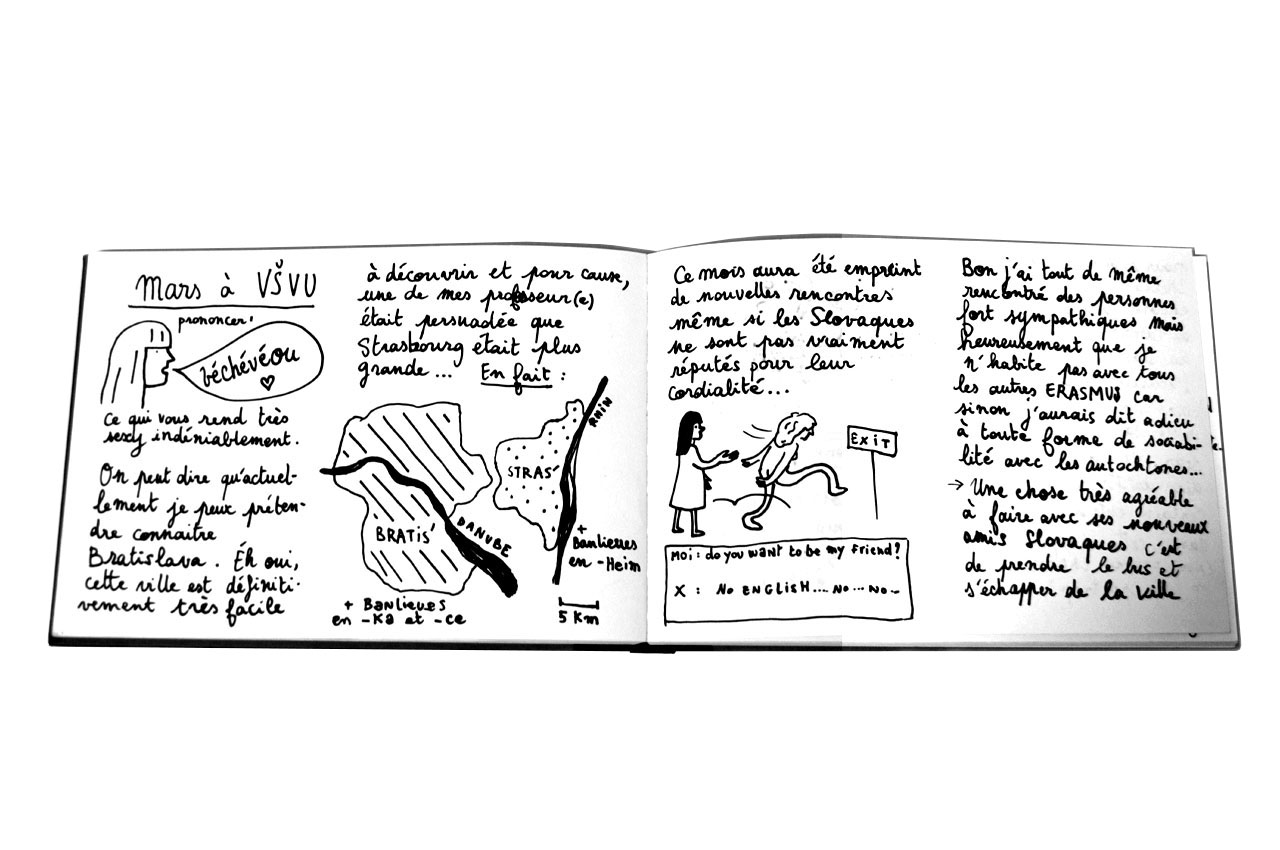 Mars à VŠVU
prononcer:
béchévéou
ce qui vous rend très
sexy indéniablement.
On peut dire qu'actuel-
lement je peux préten-
dre connaitre
Bratislava. Eh oui,
cette ville est définiti-
vement très facile
à découvrir et pour cause,
une de mes professeur(e)
était persuadée que
Strasbourg était plus
grande... En fait :
BRATIS'
DANUBE
+ Banlieues
en -Ka et -ce
STRAS'
RHIN
+
Banlieues
en -Heim
5 Km
Ce mois aura été empreint
de nouvelles rencontres
même si les Slovaques
ne sont pas vraiment
réputés pour leur
cordialité...
EXIT
Moi : do you want to be my friend?
X : NO ENGLISH... NO... NO..
Bon j'ai tout de même
rencontré des personnes
fort sympathiques mais
heureusement que je
n'habite pas avec tous
les autres ERASMUS car
sinon j'aurais dit adieu
à toute forme de sociabi-
lité avec les autochtones...
→ Une chose très agréable
à faire avec ses nouveaux
amis Slovaques c'est
de prendre le bus et
s'échapper de la ville